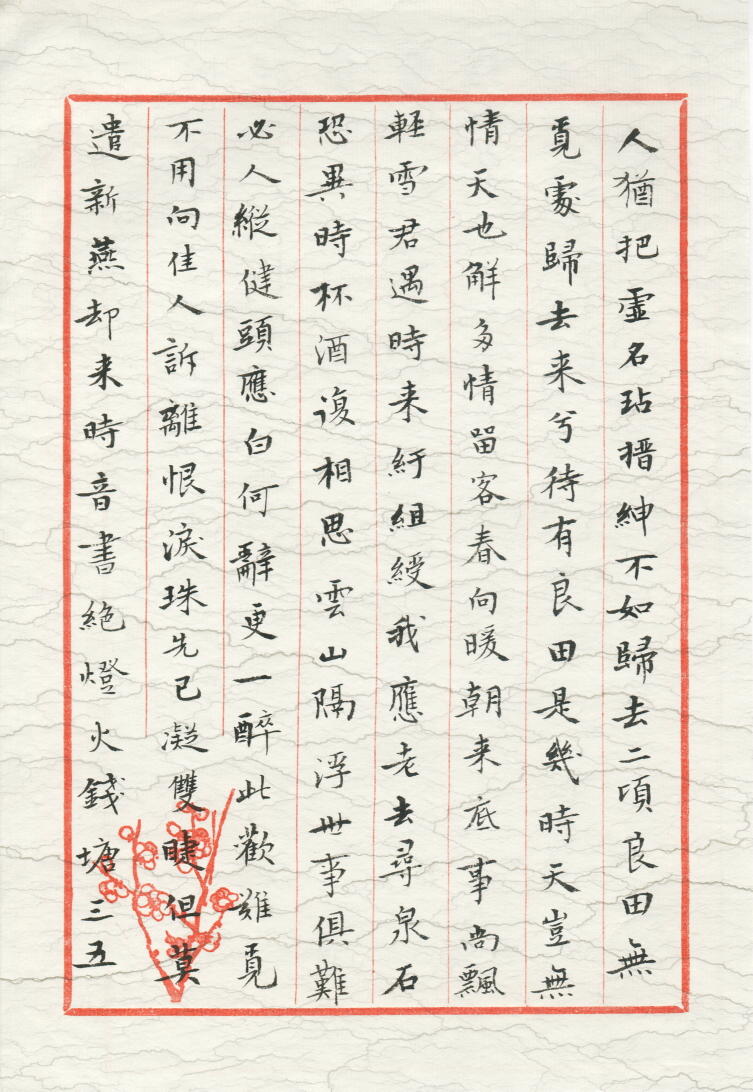 人猶把虛名玷搢紳不如歸去二頃良田無
覓處歸去来兮待有良田是幾時天豈無
情天也解多情留客春向暖朝来底事尚飄
軽雪君遇時来紆組綬我應老去尋泉石
恐異時杯酒復相思雲山隔浮世事俱難
必人縱健頭應白何辭更一醉此歡難覓
不用向佳人訴離恨淚珠先已凝雙睫但莫
遣新燕却来時音書絶燈火錢塘三五